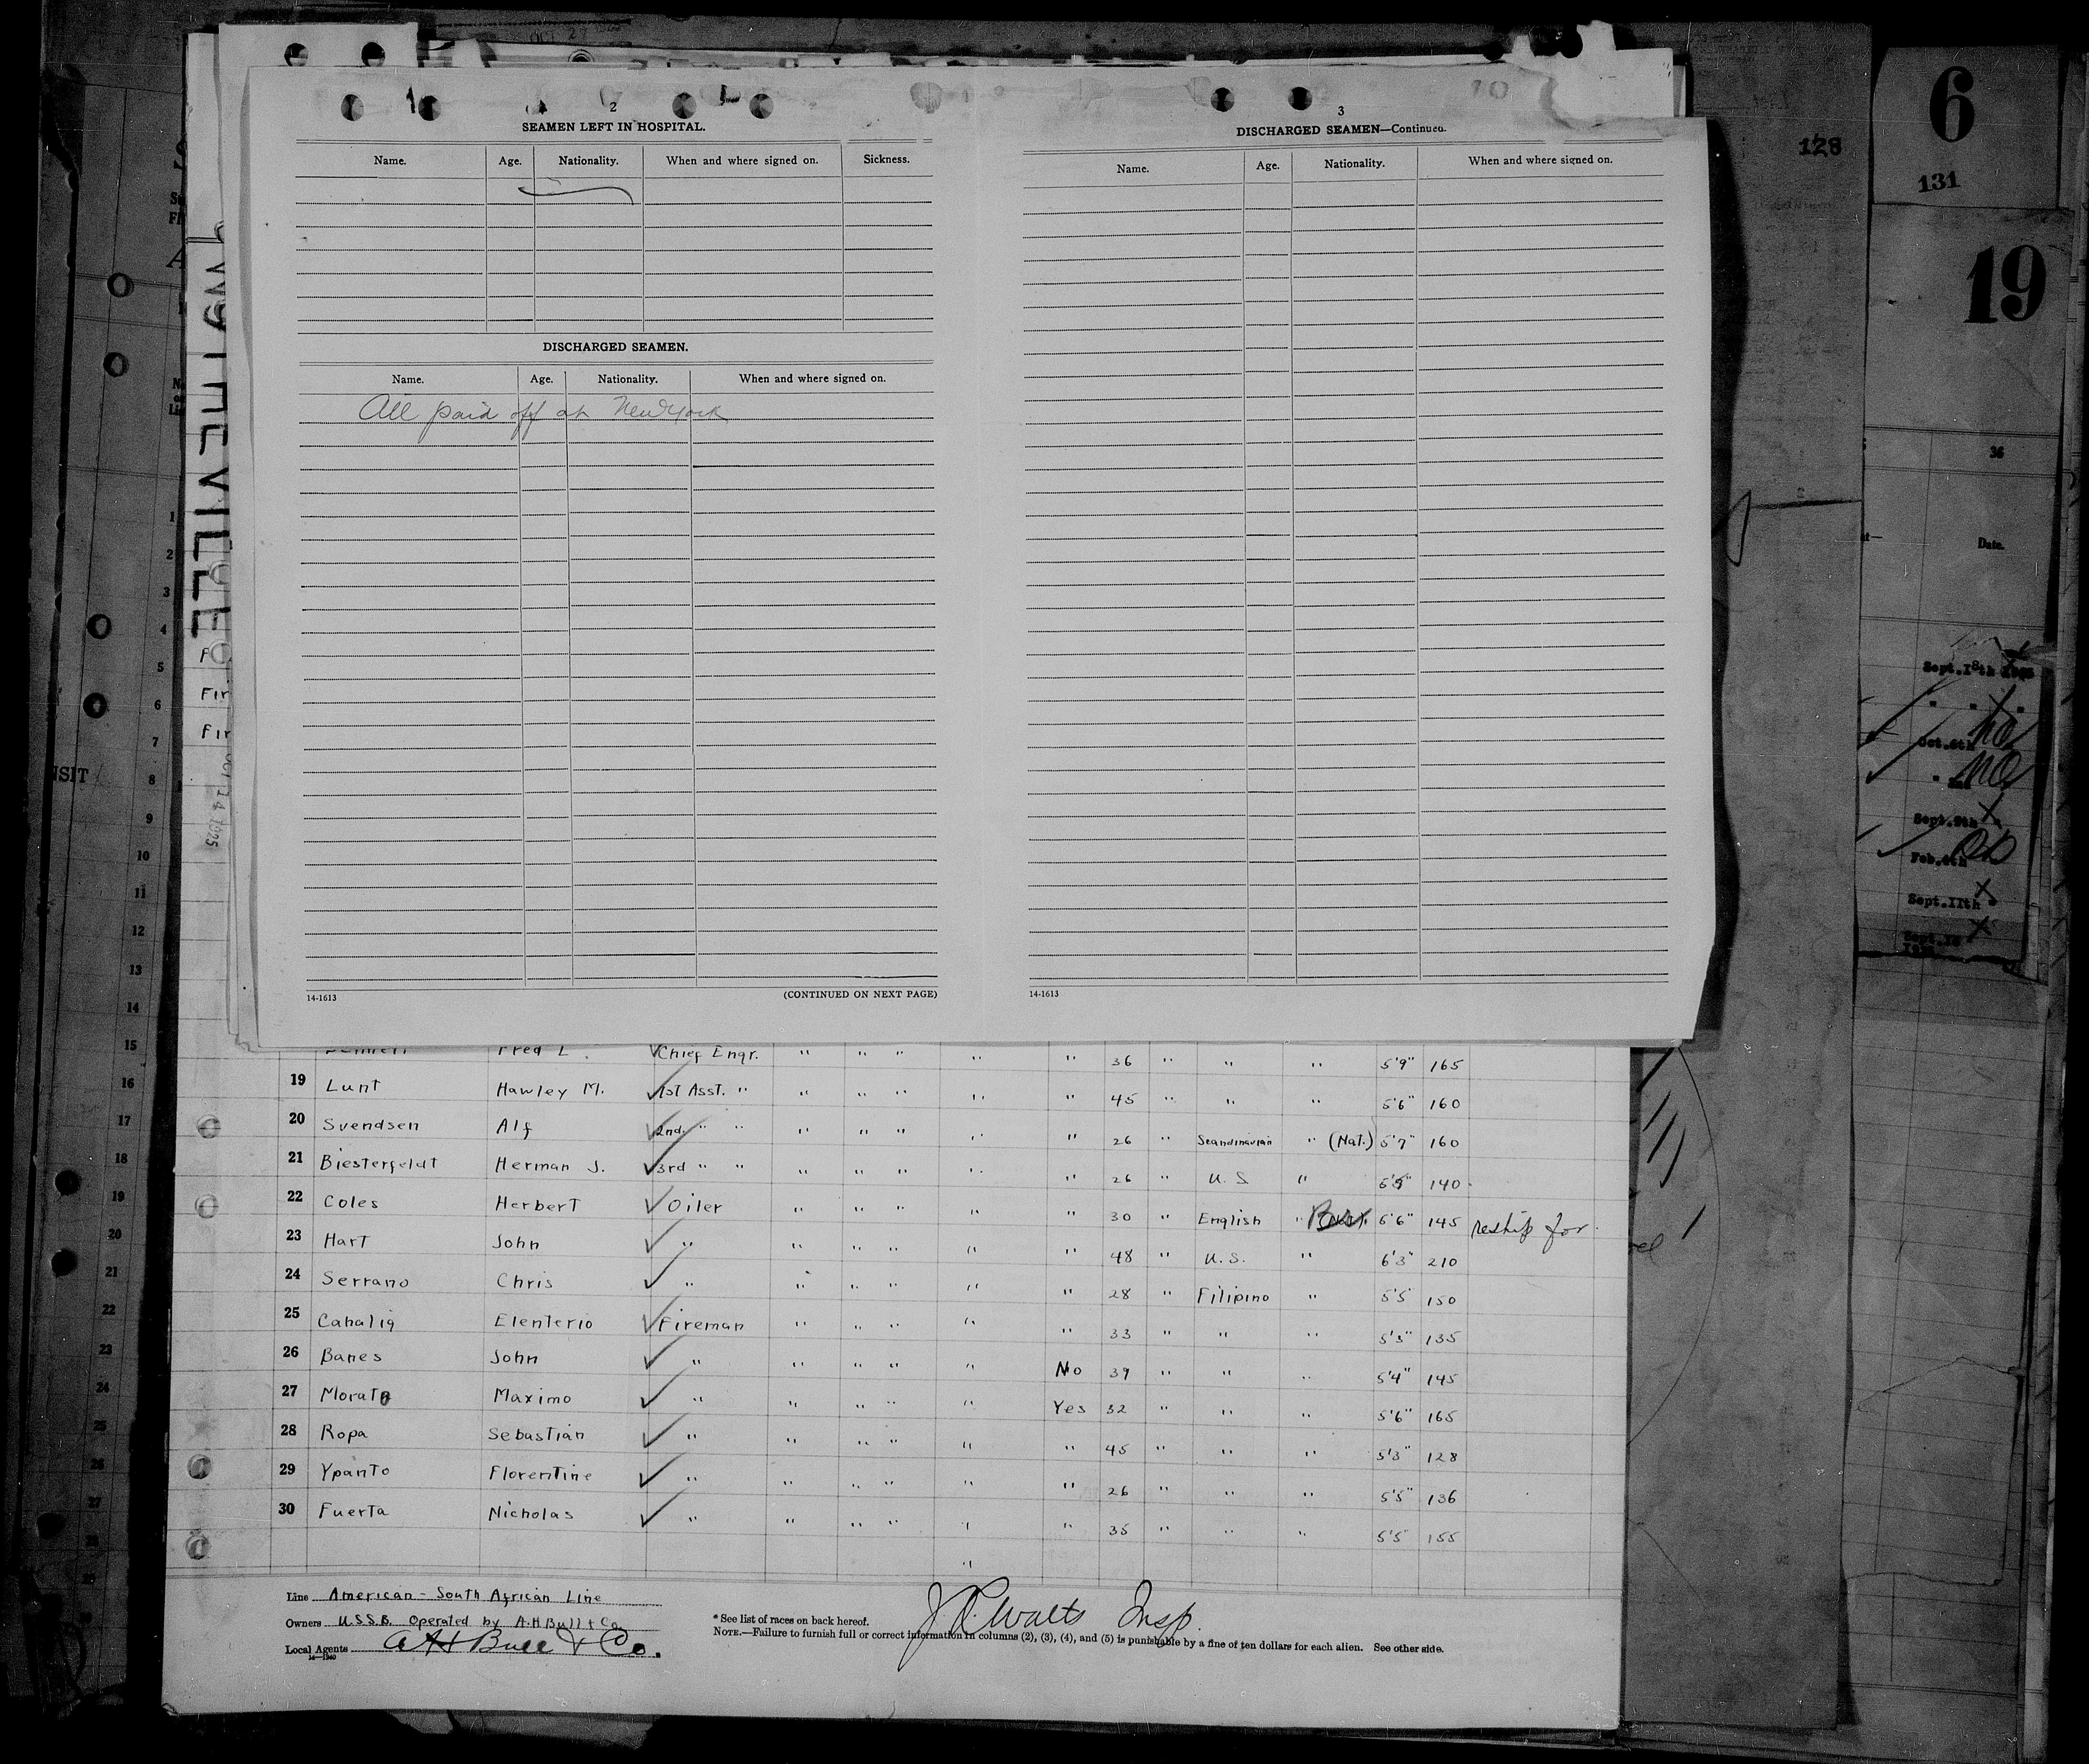 2
SEAMEN LEFT IN HOSPITAL.
Name. Age. Nationality. When and where signed on. Sickness.
DISCHARGED SEAMEN.
Name. Age. Nationality. When and where signed on.
All paid off at New York
14-1613 (CONTINUED ON NEXT PAGE)
3
DISCHARGED SEAMEN—Continued.
Name. Age. Nationality. When and where signed on.
14-1613
128
6
131
19
36
Date.
Sept.18th
Oct.6th
Sept.9th
Feb.4th
Sept.11th
OCT 14 1925
Fred L. Chief Engr. " " " " " 36 " " " 5'9" 165
19 Lunt Hawley M. 1st Asst. " " " " " " 45 " " " 5'6" 160
20 Svendsen Alf 2nd " " " " " " " 26 " Scandinavian " (Nat.) 5'7" 160
21 Biesterfeldt Herman J. 3rd " " " " " " " 26 " U.S " 140
22 Coles Herbert Oiler " " " " " 30 " English " 5'6" 145 reship for
23 Hart John " " " " " " 48 " U.S. " 6'3" 210
24 Serrano Chris " " " " " " 28 " Filipino " 5'5 150
25 Cahalig Elenterio Fireman " " " " " 33 " " " 5'3" 135
26 Banes John " " " " " No 39 " " " 5'4" 145
27 Morato Maximo " " " " " Yes 32 " " " 5'6" 165
28 Ropa Sebastian " " " " " " 45 " " " 5'3" 128
29 Ypanto Florentine " " " " " " 26 " " " 5'5" 136
30 Fuerta Nicholas " " " " " " 35 " " " 5'5" 155
Line American-South African Line
Owners U.S.S.B. Operated by A.H Bull & Co
Local Agents A H Bull & Co.
14—1240
* See list of races on back hereof.
NOTE.—Failure to furnish full or correct information in columns (2), (3), (4), and (5) is punishable by a fine of ten dollars for each alien. See other side.
Insp.